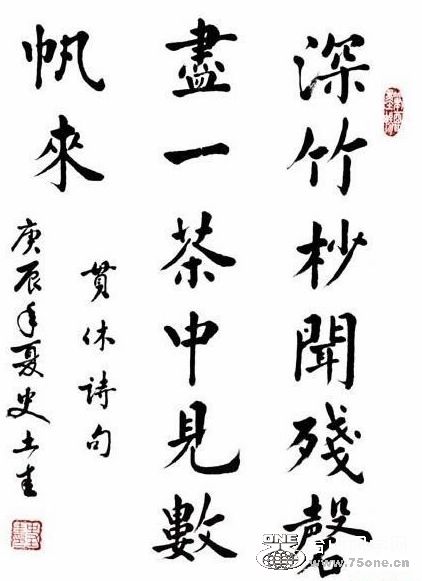 深竹杪聞殘磬
盡一茶中見數
帆來
貫休詩句
庚辰年夏史士生
ONE
www.75one.cn